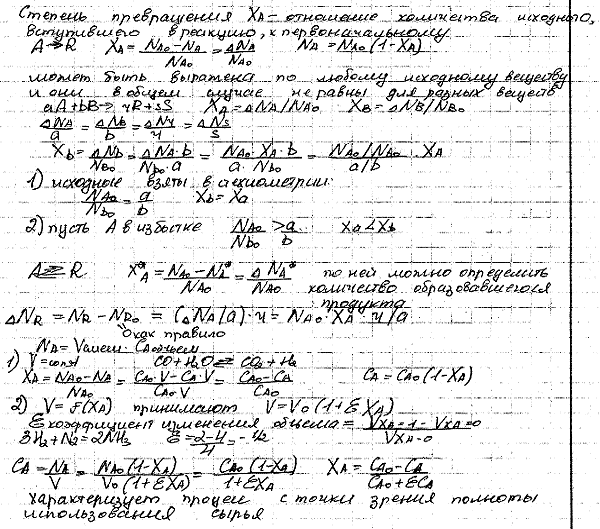 Степень превращения XA – отношение количества исходного,
вступившего в реакцию, к первоначальному
A → R   XA = (NA0 - NA)/NA0 = ΔNA/NA0   NA = NA0 (1-XA)
может быть выражена по любому исходному веществу
и они в общем случае не равны для разных веществ
aA+bB → rR+sS   XA = ΔNA/NA0   XB = ΔNB/NB0
ΔNA/a = ΔNb/b = ΔNr/r = ΔNs/s
Xb = ΔNb/Nb0 = ΔNA·b/(Nb0·a) = NA0·XA·b/(a·Nb0) = (NA0/NA0)/(a/b) · XA
1) исходные взяты в стехиометрии:
NA0/Nb0 = a/b   Xb = Xa
2) пусть A в избытке   NA0/Nb0 > a/b   XA < Xb
A ⇄ R   X*A = (NA0 - NA*)/NA0 = ΔNA*/NA0   по ней можно определить
количество образовавшегося
продукта
ΔNR = NR - NR0 = (ΔNA/a)·r = NA0·XA·r/a
0 как правило
NA = Vсмеси·CA объем
1) V=const   CO+H2O ⇄ CO2+H2
XA = (NA0-NA)/NA0 = (CA0·V-CA·V)/(CA0·V) = (CA0-CA)/CA0   CA = CA0 (1-XA)
2) V = f(XA)   принимают   V = V0 (1+ƐXA)
Ɛ коэффициент изменения объема = (VXA=1 - VXA=0)/VXA=0
3H2+N2=2NH3   Ɛ = (2-4)/4 = -1/2
CA = NA/V = NA0 (1-XA)/(V0 (1+ƐXA)) = CA0 (1-XA)/(1+ƐXA)   XA = (CA0-CA)/(CA0+ƐCA)
характеризует процесс с точки зрения полноты
использования сырья